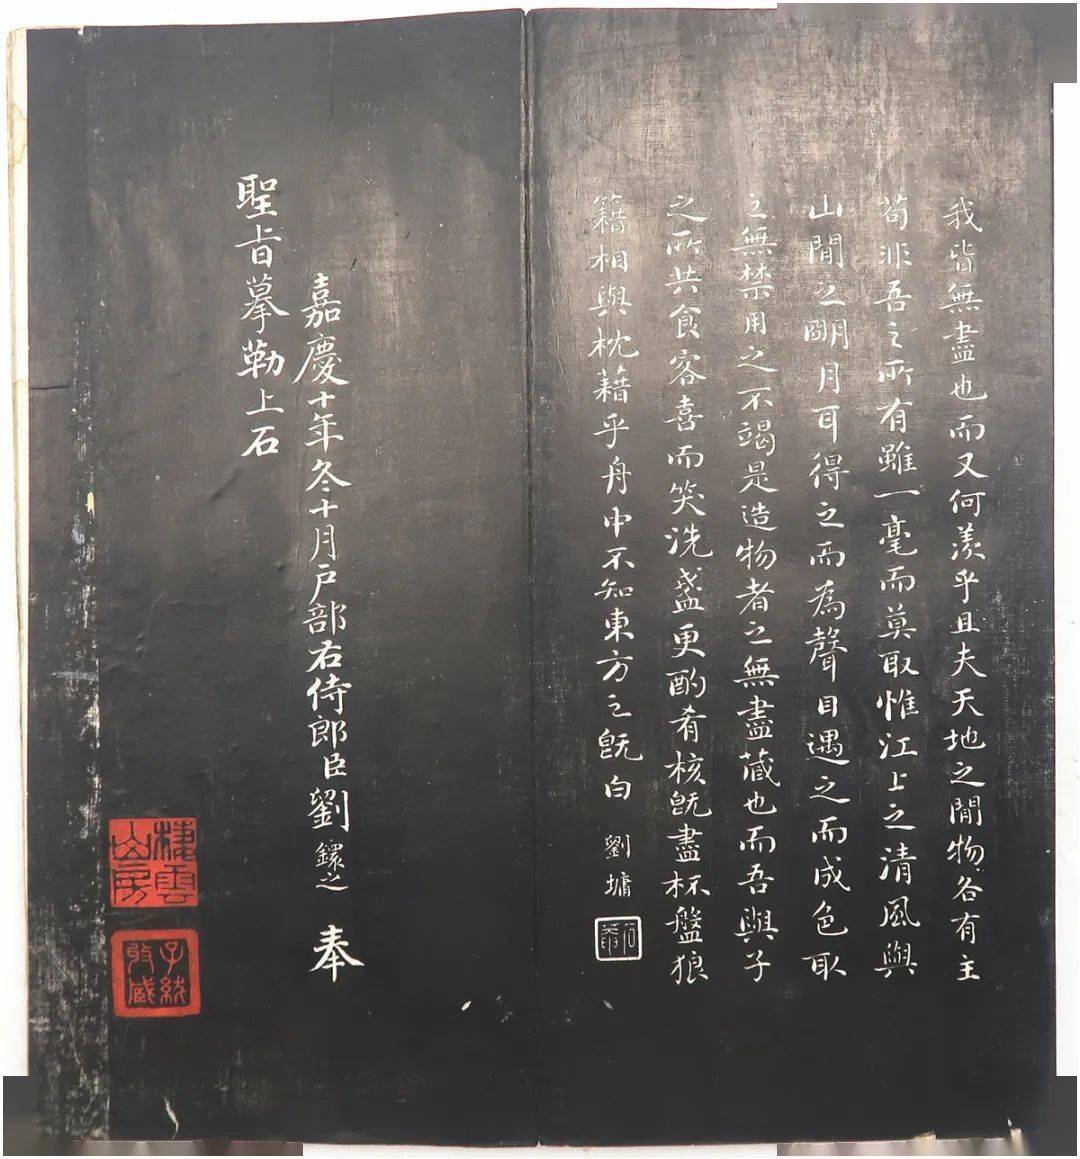 我皆無盡也而又何羨乎且夫天地之間物各有主
苟非吾之所有雖一毫而莫取惟江上之清風與
山間之朙月耳得之而為聲目遇之而成色取
之無禁用之不竭是造物者之無盡藏也而吾與子
之所共食客喜而笑洗盞更酌肴核既盡杯盤狼
籍相與枕藉乎舟中不知東方之既白 劉墉
石菴
嘉慶十年冬十月戶部右侍郎臣劉鐶之 奉
聖旨摹勒上石
棲雲山房